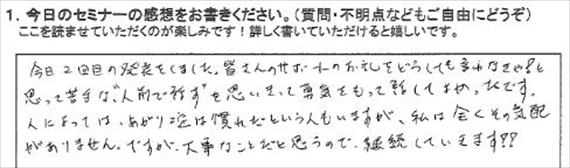 1. 今日のセミナーの感想をお書きください。(質問・不明点などもご自由にどうぞ)
ここを読ませていただくのが楽しみです!詳しく書いていただけると嬉しいです。
今日2回目の発表をしました。皆さんのサポートのお礼をどうしても言わなきゃ!と
思って苦手な"人前で話す"を思いきって勇気をもって話してよかったです。
人によっては、あがり症は慣れだという人もいますが、私は全くその気配
がありません。ですが、大事なことだと思うので、継続していきます!!